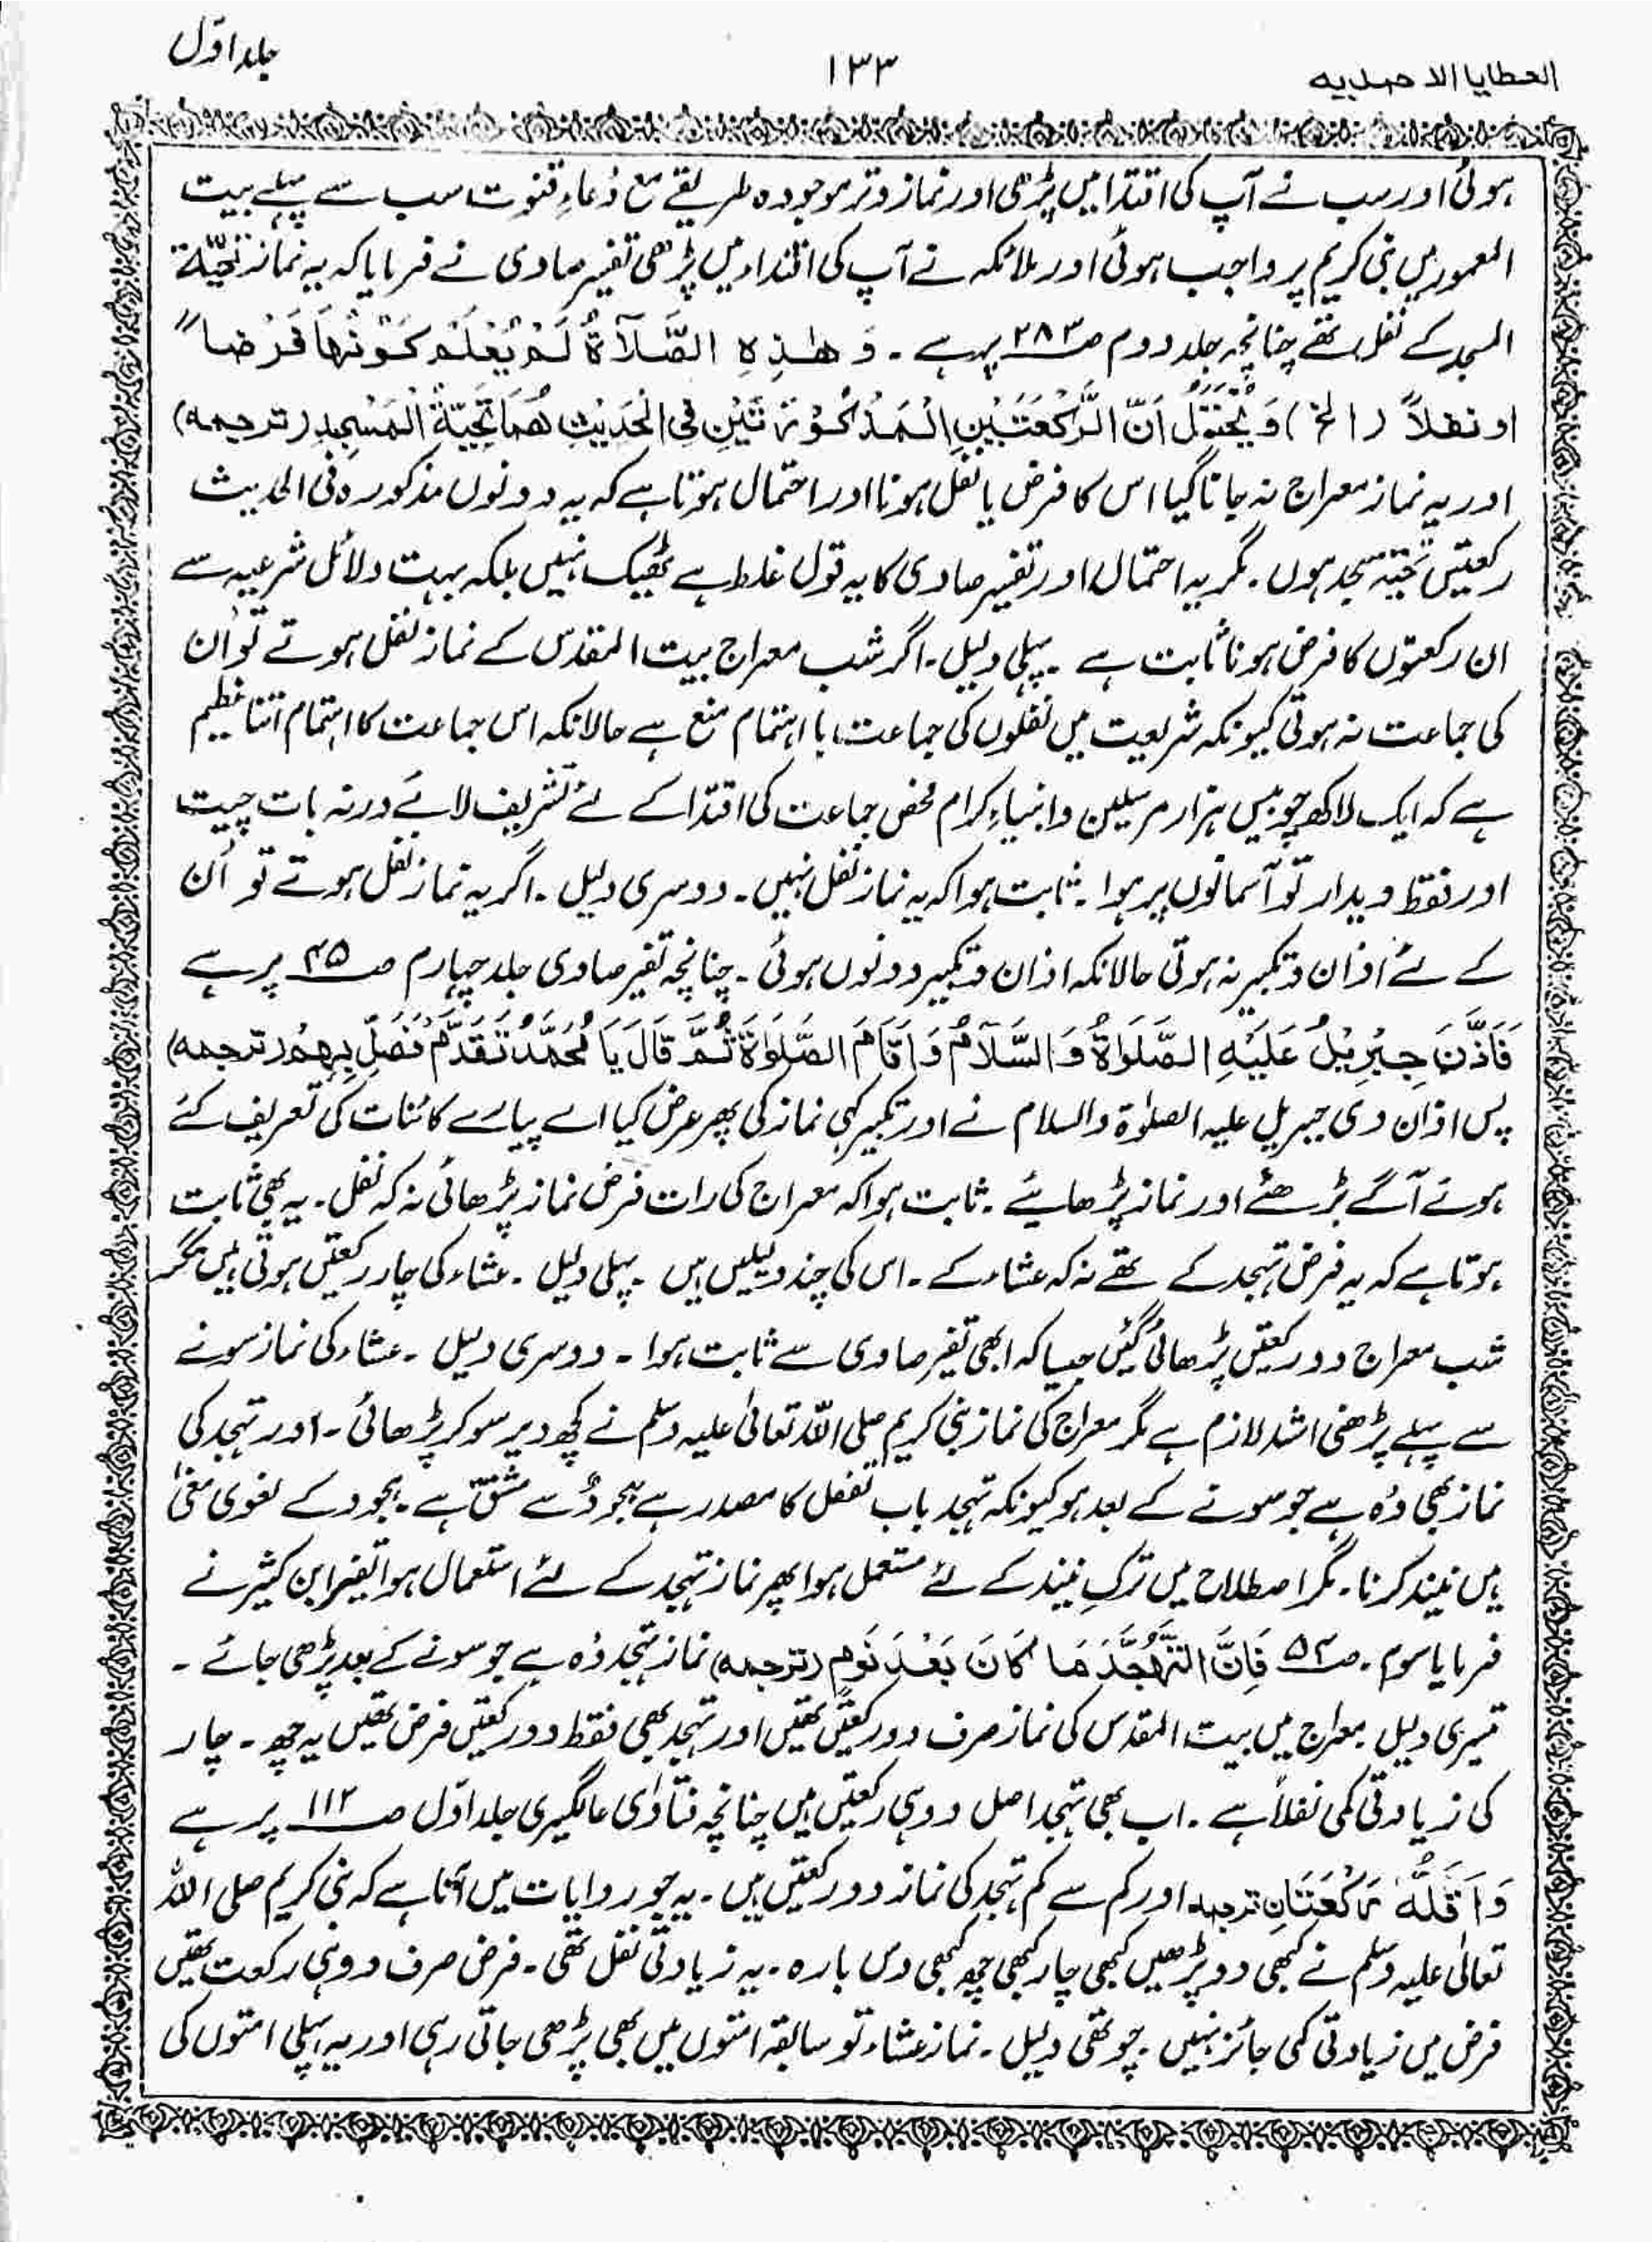 العطایا الاحمدیہ ۱۳۳ جلد اوّل
ہوئی اور سب نے آپ کی اقتدا میں پڑھی اور نماز وتر موجودہ طریقے مع دُعاءِ قنوت سب سے پہلے بیت
المعمور میں نبی کریم پر واجب ہوئی اور ملائکہ نے آپ کی اقتداء میں پڑھی تفسیر صاوی نے فرمایا کہ یہ نماز تَحِیَّۃ
المسجد کے نفل تھے چنانچہ جلد دوم صـ۲۸۳ پر ہے ۔ وَ ھٰذِہِ الصَّلَاۃُ لَمْ یُعْلَمْ کَوْنُھَا فَرْضًا
او نفلاً (الخ) وَیُحْتَمَلُ اَنَّ الرَّکْعَتَیْنِ الْمَذْکُوْرَتَیْنِ فِی الْحَدِیْثِ ھُمَا تَحِیَّۃُ الْمَسْجِدِ (ترجمہ)
اور یہ نماز معراج نہ جانا گیا اس کا فرض یا نفل ہونا اور احتمال ہوتا ہے کہ یہ دونوں مذکورہ فی الحدیث
رکعتیں تحیّۃ مسجد ہوں ۔ مگر یہ احتمال اور تفسیر صاوی کا یہ قول غلط ہے ٹھیک نہیں بلکہ بہت دلائل شرعیہ سے
ان رکعتوں کا فرض ہونا ثابت ہے ۔ پہلی دلیل ۔ اگر شب معراج بیت المقدس کے نماز نفل ہوتے تو اُن
کی جماعت نہ ہوتی کیونکہ شریعت میں نفلوں کی جماعت با اہتمام منع ہے حالانکہ اس جماعت کا اہتمام اتنا عظیم
ہے کہ ایک لاکھ چوبیس ہزار مرسلین و انبیاءِ کرام محض جماعت کی اقتدا کے لئے تشریف لائے ورنہ بات چیت
اور فقط دیدار تو آسمانوں پر ہوا ۔ ثابت ہوا کہ یہ نماز نفل نہیں ۔ دوسری دلیل ۔ اگر یہ نماز نفل ہوتے تو اُن
کے لئے اذان و تکبیر نہ ہوتی حالانکہ اذان و تکبیر دونوں ہوئی ۔ چنانچہ تفسیر صاوی جلد چہارم صـ۴۵ پر ہے
فَاَذَّنَ جِبْرِیْلُ عَلَیْہِ الصَّلَوٰۃُ وَالسَّلَامُ وَ اَقَامَ الصَّلَوٰۃَ ثُمَّ قَالَ یَا مُحَمَّدُ تَقَدَّمْ فَصَلِّ بِھِمْ (ترجمہ)
پس اذان دی جبریل علیہ الصلوٰۃ والسلام نے اور تکبیر کہی نماز کی پھر عرض کیا اے پیارے کائنات کی تعریف کئے
ہوئے آگے بڑھئے اور نماز پڑھایئے ۔ ثابت ہوا کہ معراج کی رات فرض نماز پڑھائی نہ کہ نفل ۔ یہ بھی ثابت
ہوتا ہے کہ یہ فرض تہجد کے تھے نہ کہ عشاء کے ۔ اس کی چند دلیلیں ہیں ۔ پہلی دلیل ۔ عشاء کی چار رکعتیں ہوتی ہیں مگر
شب معراج دو رکعتیں پڑھائی گئیں جیسا کہ ابھی تفسیر صاوی سے ثابت ہوا ۔ دوسری دلیل ۔ عشاء کی نماز سونے
سے پہلے پڑھنی اشد لازم ہے مگر معراج کی نماز نبی کریم صلی اللہ تعالیٰ علیہ وسلم نے کچھ دیر سو کر پڑھائی ۔ اور تہجد کی
نماز بھی وُہ ہے جو سونے کے بعد ہو کیونکہ تہجد باب تفعل کا مصدر ہے ہجودٌ سے مشتقّ ہے ۔ ہجود کے لغوی معنیٰ
ہیں نیند کرنا ۔ مگر اصطلاح میں ترکِ نیند کے لئے مستعمل ہوا پھر نماز تہجد کے لئے استعمال ہوا تفسیر ابن کثیر نے
فرمایا سوم ۔ صـ۵۴ فَاِنَّ التَّھَجُّدَ مَا کَانَ بَعْدَ نَوْمٍ (ترجمہ) نماز تہجد وُہ ہے جو سونے کے بعد پڑھی جائے ۔
تیسری دلیل ۔ معراج میں بیت المقدس کی نماز صرف دو رکعتیں تھیں اور تہجد بھی فقط دو رکعتیں فرض تھیں یہ چھ ۔ چار
کی زیادتی کمی نفلاً ہے ۔ اب بھی تہجد اصل دو ہی رکعتیں ہیں چنانچہ فتاوٰی عالمگیری جلد اوّل صـ۱۱۲ پر ہے
وَ اَقَلُّہٗ رَکْعَتَانِ ترجمہ اور کم سے کم تہجد کی نماز دو رکعتیں ہیں ۔ یہ جو روایات میں آتا ہے کہ نبی کریم صلی اللہ
تعالیٰ علیہ وسلم نے کبھی دو پڑھیں کبھی چار کبھی چھ کبھی دس بارہ ۔ یہ زیادتی نفل تھی ۔ فرض صرف دو ہی رکعت تھیں
فرض میں زیادتی کمی جائز نہیں ۔ چوتھی دلیل ۔ نماز عشاء تو سابقہ امتوں میں بھی پڑھی جاتی رہی اور یہ پہلی امتوں کی